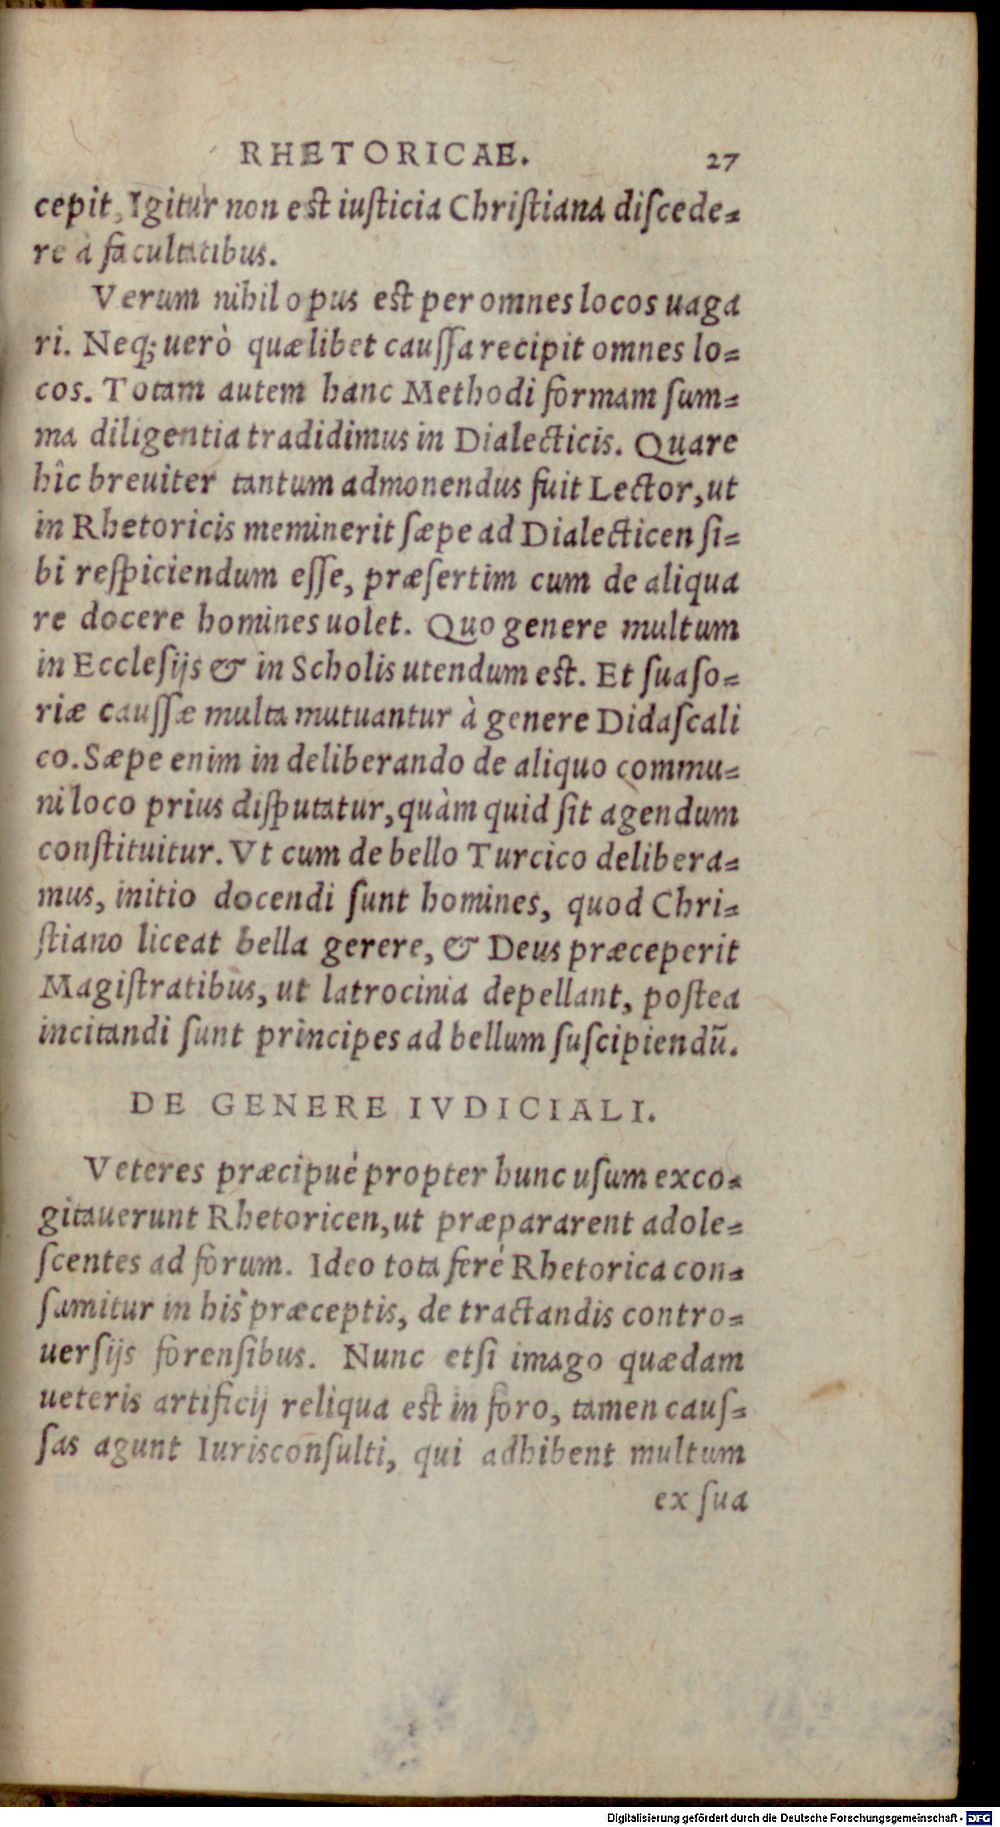 RHETORICAE. 27
cepit, Igitur non est iusticia Christiana discede=
re à facultatibus.
Verum nihil opus est per omnes locos uaga
ri. Neq; uerò quælibet caussa recipit omnes lo=
cos. Totam autem hanc Methodi formam sum=
ma diligentia tradidimus in Dialecticis. Quare
hîc breuiter tantum admonendus fuit Lector, ut
in Rhetoricis meminerit sæpe ad Dialecticen si=
bi respiciendum esse, præsertim cum de aliqua
re docere homines uolet. Quo genere multum
in Ecclesijs & in Scholis utendum est. Et suaso=
riæ caussæ multa mutuantur à genere Didascali
co. Sæpe enim in deliberando de aliquo commu=
ni loco prius disputatur, quàm quid sit agendum
constituitur. Vt cum de bello Turcico delibera=
mus, initio docendi sunt homines, quod Chri=
stiano liceat bella gerere, & Deus præceperit
Magistratibus, ut latrocinia depellant, postea
incitandi sunt principes ad bellum suscipiendũ.
DE GENERE IVDICIALI.
Veteres præcipuè propter hunc usum exco=
gitauerunt Rhetoricen, ut præpararent adole=
scentes ad forum. Ideo tota ferè Rhetorica con=
sumitur in his præceptis, de tractandis contro=
uersijs forensibus. Nunc etsi imago quædam
ueteris artificij reliqua est in foro, tamen caus=
sas agunt Iurisconsulti, qui adhibent multum
ex sua
Digitalisierung gefördert durch die Deutsche Forschungsgemeinschaft - DFG